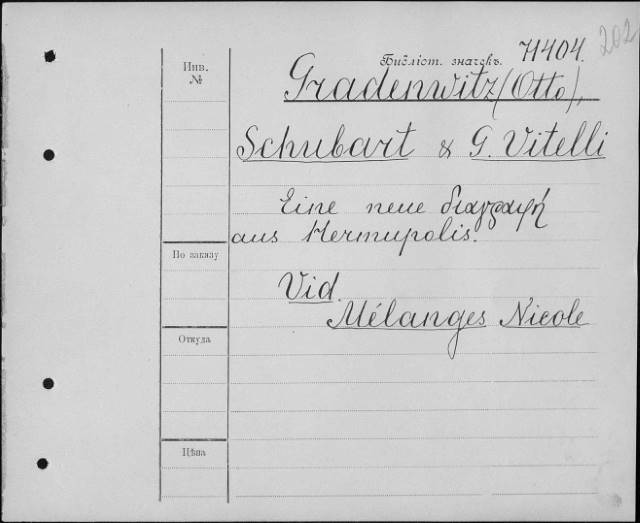 202
Инв. №
Библіот. значекъ. 71404.
Gradenwitz (Otto),
Schubart & G. Vitelli
Eine neue διαγραφή
aus Hermupolis.
По заказу
Vid.
Mélanges Nicole
Откуда
Цѣна